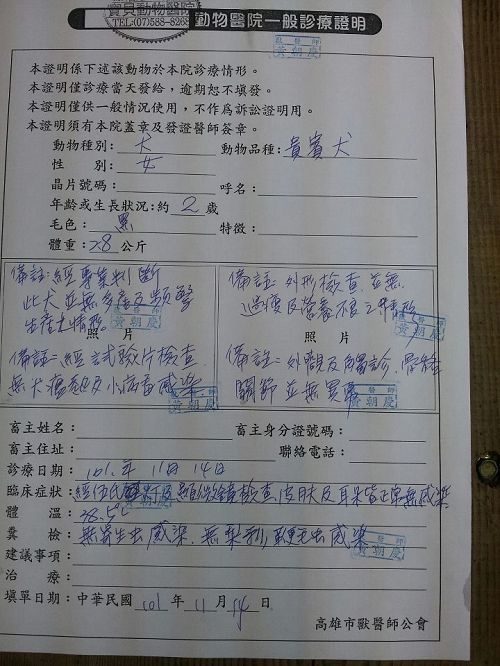 寶貝動物醫院
TEL:(07)588-8265
動物醫院一般診療證明
獸醫師
黃朝慶
本證明係下述該動物於本院診療情形。
本證明僅診療當天發給，逾期恕不填發。
本證明僅供一般情況使用，不作為訴訟證明用。
本證明須有本院蓋章及發證醫師簽章。
動物種別：犬 動物品種：貴賓犬
性 別：女
晶片號碼： 呼名：
年齡或生長狀況：約 2 歲
毛色：黑 特徵：
體重：2.8 公斤
備註：經專業判斷
此犬並無多產及頻繁
生產之情形。
照 片
備註：經試驗片檢查
無犬瘟熱及小病毒感染
獸醫師
黃朝慶
備註：外形檢查並無
過瘦及營養不良之情形
照 片
備註：外觀及觸診，骨骼
關節並無異常
獸醫師
黃朝慶
畜主姓名： 畜主身分證號碼：
畜主住址： 聯絡電話：
診療日期：101年 11月 14日
臨床症狀：經伍氏燈及顯微鏡檢查，皮膚及耳朵皆正常無感染
體 溫：38.5℃
糞 檢：無寄生虫感染，無梨形鞭毛虫感染
獸醫師
黃朝慶
建議事項：
治 療：
填單日期：中華民國 101 年 11 月 14 日
高雄市獸醫師公會